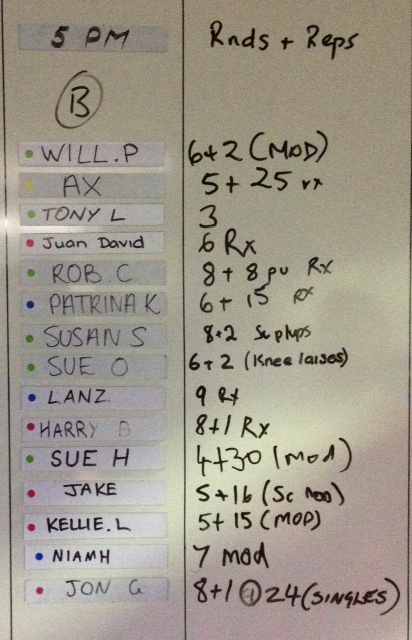 5 PM Rnds + Reps
B
WILL.P 6+2 (MOD)
AX 5+25 rx
TONY L 3
Juan David 6 Rx
ROB C 8+8 pu Rx
PATRINA K 6+15 rx
SUSAN S 8+2 Sc
SUE O 6+2 (Knee raises)
LANZ 9 Rx
HARRY B 8+1 Rx
SUE H 4+30 (mod)
JAKE 5+16 (Sc
KELLIE.L 5+15 (MOD)
NIAMH 7 mod
JON G 8+1 24 (SINGLES)